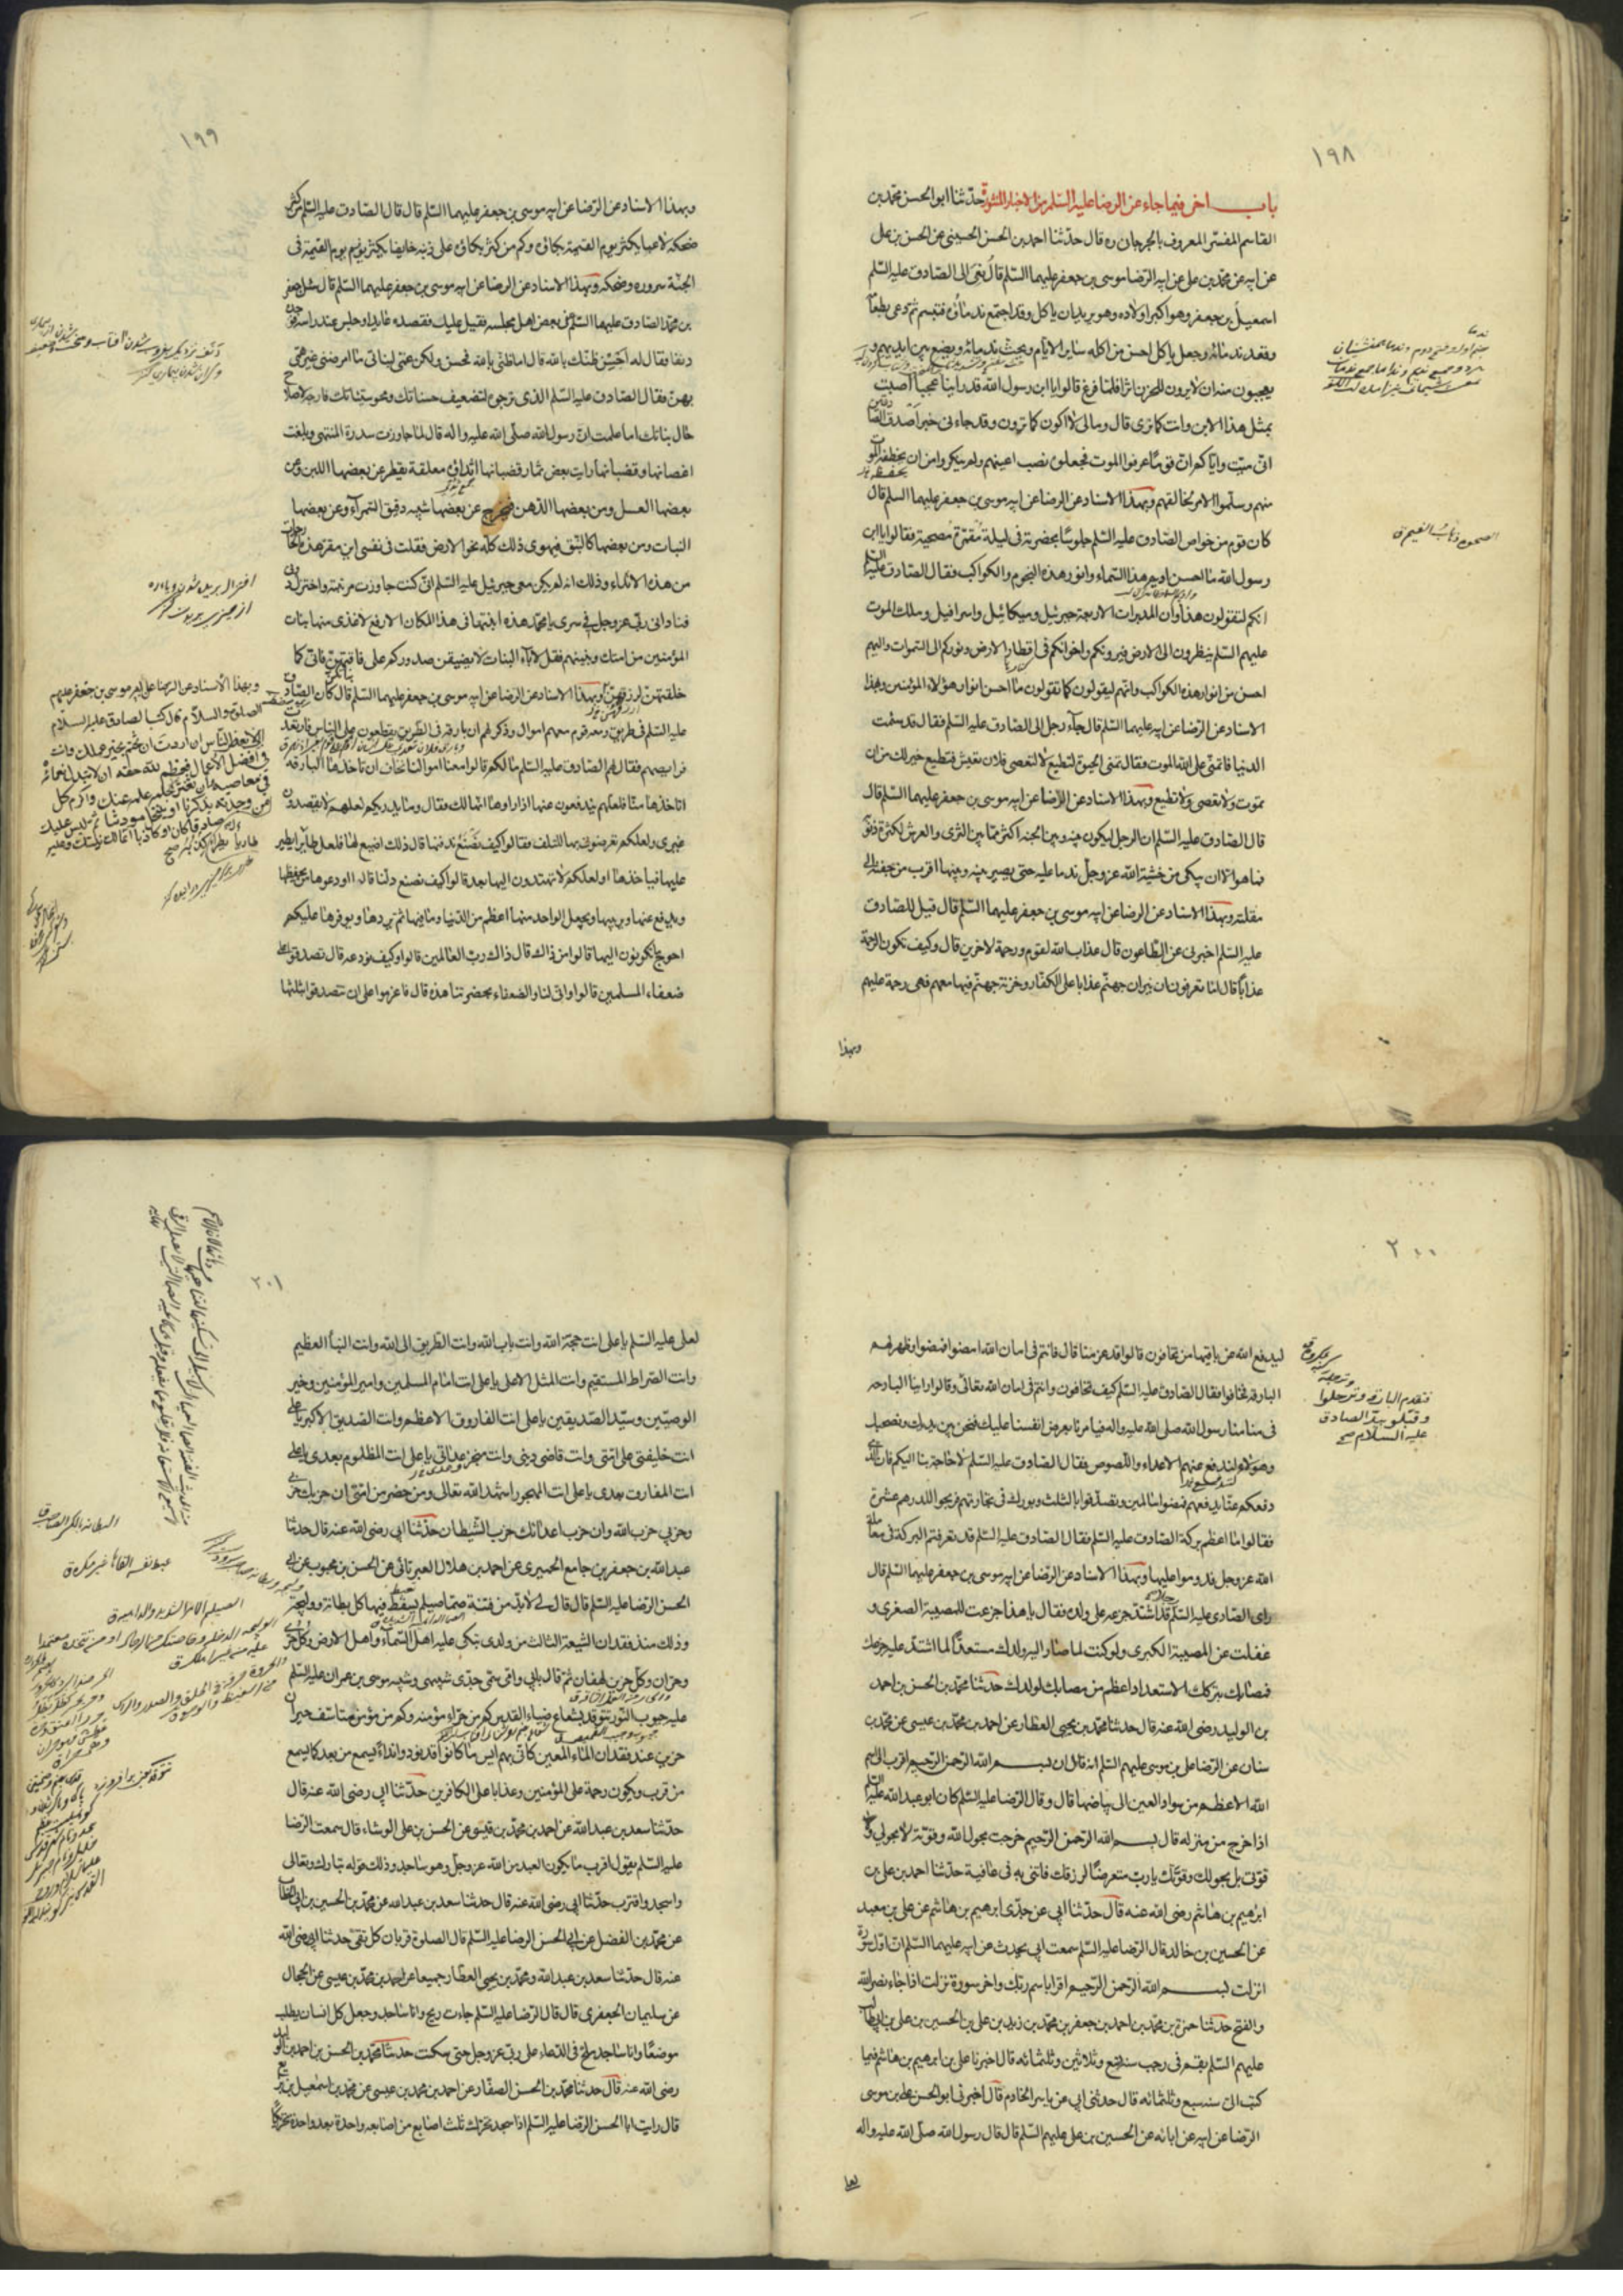 ١٩٨
باب اخر فيما جاء عن الرضا عليه السّلم من الاخبار المنثورة حدّثنا ابو الحسن محمّد بن
القاسم المفسّر المعروف بالجرجاني ره قال حدّثنا احمد بن الحسن الحسيني عن الحسن بن علي
عن ابيه عن محمّد بن علي عن ابيه الرّضا موسى بن جعفر عليهما السّلم قال نُعِيَ الى الصّادق عليه السّلم
اسمعيل بن جعفر وهو اكبر اولاده وهو يريد ان ياكل وقد اجتمع ندماؤه فتبسم ثم دعى بطعامه
وقعد ندمائه وجعل ياكل احسن من اكله ساير الايّام ويحث ندمائه ويضع بين ايديهم و
يعجبون منه ان لا يرون للحزن اثرا فلما فرغ قالوا يا ابن رسول الله قد راينا عجبا اصبت
بمثل هذا الابن وانت كما نرى قال ومالي لا اكون كما ترون وقد جاءني خبر اصدق الصادقين
اني ميّت واياكم ان قومًا عرفوا الموت فجعلوه نصب اعينهم ولم ينكروا من ان يخطفه الموت
منهم وسلّموا الامر لخالقهم وبهذا الاسناد عن الرضا عن ابيه موسى بن جعفر عليهما السلم قال
كان قوم من خواص الصّادق عليه السّلم جلوسًا بحضرته في ليلة مُقمرة مصحية فقالوا يا ابن
رسول الله ما احسن اديم هذا السّماء وانور هذه النجوم والكواكب فقال الصّادق عليه السلم
انكم لتقولون هذا وان المدبرات الاربعة جبرئيل وميكائيل واسرافيل وملك الموت
عليهم السّلم ينظرون الى الارض فيرونكم واخوانكم في اقطار الارض ونوركم الى السّموات واليهم
احسن من انوار هذه الكواكب وانهم ليقولون كما تقولون ما احسن انوار هؤلاء المؤمنين وبهذا
الاسناد عن الرّضا عن ابيه عليهما السّلم قال جاء رجل الى الصّادق عليه السّلم فقال قد سئمت
الدنيا فاتمنّى على الله الموت فقال تمنى الحيوة لتطيع لا لتعصى فلان تعيش فتطيع خير لك من ان
تموت ولا تعصى ولا تطيع وبهذا الاسناد عن الرّضا عن ابيه موسى بن جعفر عليهما السّلم قال
قال الصّادق عليه السّلم ان الرجل ليكون بينه وبين الجنه اكثر مما بين الثرى والعرش لكثرة ذنوبه
فما هو الا ان يبكى من خشية الله عز وجل ندما عليه حتى يصير بينه وبينها اقرب من جفنه الى
مقلته وبهذا الاسناد عن الرضا عن ابيه موسى بن جعفر عليهما السّلم قال قيل للصادق
عليه السّلم اخبرنى عن الطّاعون قال عذاب الله لقوم ورحمة لاخرين قال وكيف تكون الرحمة
عذابًا قال اما تعرفون ان نيران جهنّم عذابا على الكفّار وخزنة جهنّم فيها معهم فهى رحمة عليهم
وبهذا
١٩٩
وبهذا الاسناد عن الرّضا عن ابيه موسى بن جعفر عليهما السّلم قال قال الصّادق عليه السّلم من كثر
ضحكه لاعبا يكثر يوم القيمة بكاؤه وكم من كثر بكاؤه على ذنبه خايفا يكثر يوم القيمة في
الجنّة سروره وضحكه وبهذا الاسناد عن الرضا عن ابيه موسى بن جعفر عليهما السّلم قال سئل جعفر
بن محمّد الصّادق عليهما السّلم عن بعض اهل مجلسه فقيل عليك فقصده عايدا وجلس عند راسه فوجده
دنفا فقال له احسن ظنّك بالله قال اما ظنّي بالله فحسن ولكن غمّي لبناتي ما امرضني غير غمّي
بهنّ فقال الصّادق عليه السّلم الذي ترجوه لتضعيف حسناتك ومحو سيّئاتك فارجه لاصلاح
حال بناتك اما علمت ان رسول الله صلّى الله عليه واله قال لما جاوزت سدرة المنتهى وبلغت
اغصانها وقضبانها رايت بعض ثمار قضبانها اثداؤه معلقة يقطر من بعضها اللبن ومن
بعضها العسل ومن بعضها الدّهن ويخرج عن بعضها شبيه دقيق السّميد وعن بعضها
النبات ومن بعضها كالنّبق فيهوى ذلك كلّه نحو الارض فقلت في نفسي اين مقرّ هذه الخارجات
من هذه الاثداء وذلك انه لم يكن معي جبرئيل عليه السّلم لاني كنت جاوزت مرتبته واختزل دوني
فناداني ربّي عز وجل في سرى يا محمّد هذه انبتها في هذا المكان الارفع لاغذى منها بنات
المؤمنين من امتك وبنيهم فقل لاباء البنات لا تضيقن صدوركم على فاقتهنّ فاني كما
خلقتهنّ ارزقهنّ وبهذا الاسناد عن الرضا عن ابيه موسى بن جعفر عليهما السّلم قال كان الصّادق
عليه السّلم في طريق ومعه قوم معهم اموال وذكر لهم ان بارقة في الطريق يقطعون على النّاس فارتعدت
فرايصهم فقال لهم الصّادق عليه السّلم ما لكم قالوا معنا اموالنا نخاف ان تاخذها البارقه
افتاخذها منّا فلعلّهم يندفعون عنها اذا راوها انها لك فقال وما يدريكم لعلهم لا يقصدون
غيري ولعلكم تعرضوني بها للتلف فقالوا كيف نصنع ندفنها قال ذلك اضيع لها فلعل طايرا يطير
عليها فياخذها او لعلكم لا تهتدون اليها بعد قالوا كيف نصنع دلّنا قال اودعوها من يحفظها
ويدفع عنها ويربيها ويجعل الواحد منها اعظم من الدّنيا وما فيها ثم يردها ويوفرها عليكم
احوج ما تكونون اليها قالوا من ذاك قال ذاك ربّ العالمين قالوا وكيف نودعه قال تصدقوا على
ضعفاء المسلمين قالوا واني لنا والضعفاء بحضرتنا هذه قال فاعزموا على ان تتصدقوا بثلثها
وبهذا الأسناد عن الرضا عن ابيه موسى بن جعفر عليهم
الصلوة والسلام قال كتب الصادق عليه السلام
الى بعض الناس ان اردت ان يختم بخير عملك وانت
في افضل الاعمال فعظم لله حقه ان لا تبذل نعمائه
في معاصيه وان تغتر بحلمه عنك واكرم كل
من وجدته يذكرنا او ينتحل مودتنا ثم ليس عليك
صادقا كان او كاذبا انما لك نيتك وعليه
٢٠٠
ليدفع الله عن باقيها من تخافون قالوا قد عزمنا قال فانتم في امان الله امضوا فمضوا وظهر لهم
البارقه فخافوا فقال الصّادق عليه السّلم كيف تخافون وانتم في امان الله تعالى وقالوا راينا البارحه
في منامنا رسول الله صلى الله عليه واله فيامرنا بعرض انفسنا عليك فنحن بين يديك ونصحبك
وهؤلاء لندفع عنهم الاعداء واللّصوص فقال الصّادق عليه السّلم لا حاجة بنا اليكم فان الّذي
دفعكم عنّا يدفعهم فمضوا سالمين وتصدّقوا بالثلث وبورك في تجاراتهم فربحوا للدرهم عشرة
فقالوا ما اعظم بركة الصّادق عليه السّلم فقال الصّادق عليه السّلم قد تعرفتم البركة في معاملة
الله عز وجل فدوموا عليها وبهذا الاسناد عن الرّضا عن ابيه موسى بن جعفر عليهما السّلم قال
راى الصّادق عليه السّلم رجلا قد اشتدّ جزعه على ولده فقال يا هذا جزعت للمصيبة الصغرى و
غفلت عن المصيبة الكبرى ولو كنت لما صار اليه ولدك مستعدًّا لما اشتدّ عليه جزعك
فمصابك بتركك الاستعداد اعظم من مصابك لولدك حدّثنا محمّد بن الحسن بن احمد
بن الوليد رضى الله عنه قال حدثنا محمّد بن يحيى العطار عن احمد بن محمّد بن عيسى عن محمّد بن
سنان عن الرّضا على بن موسى عليهم السّلم انه قال ان بسم الله الرّحمن الرّحيم اقرب الى اسم
الله الاعظم من سواد العين الى بياضها قال وقال الرّضا عليه السّلم كان ابو عبد الله عليه السلم
اذا خرج من منزله قال بسم الله الرّحمن الرّحيم خرجت بحول الله وقوّته لا بحولي ولا
قوّتي بل بحولك وقوّتك يا ربّ متعرضًا لرزقك فاتني به في عافية حدّثنا احمد بن علي بن
ابراهيم بن هاشم رضى الله عنه قال حدّثنا ابي عن جدّى ابرهيم بن هاشم عن على بن معبد
عن الحسين بن خالد قال قال الرّضا عليه السّلم سمعت ابي يحدث عن ابيه عليهما السّلم ان اوّل سورة
انزلت بسم الله الرّحمن الرّحيم اقرا باسم ربّك واخر سورة نزلت اذا جاء نصر الله
والفتح حدّثنا حمزة بن محمّد بن احمد بن جعفر بن محمّد بن زيد بن على بن الحسين بن على بن ابي طالب
عليهم السّلم بقم في رجب سنة تسع وثلاثين وثلثمائه قال اخبرنا على بن ابرهيم بن هاشم فيما
كتب الىّ سنة سبع وثلثمائه قال حدثنى ابي عن ياسر الخادم قال اخبرنى ابو الحسن على بن موسى
الرّضا عن ابيه عن ابائه عن الحسين بن على عليهم السّلم قال قال رسول الله صلى الله عليه واله
فتقدم البارقة وترجلوا
وقبّلوا يد الصادق
عليه السلام صح
٢٠١
لعلى عليه السّلم يا على انت حجّة الله وانت باب الله وانت الطّريق الى الله وانت النبأ العظيم
وانت الصّراط المستقيم وانت المثل الاعلى يا على انت امام المسلمين وامير المؤمنين وخير
الوصيّين وسيّد الصّديقين يا على انت الفاروق الاعظم وانت الصّديق الاكبر يا على
انت خليفتي على امّتي وانت قاضي ديني وانت منجز عداتي يا على انت المظلوم بعدى يا على
انت المفارق بعدى يا على انت المهجور اشهد الله تعالى ومن حضر من امّتى ان حزبك حزبي
وحزبي حزب الله وان حزب اعدائك حزب الشّيطان حدّثنا ابي رضى الله عنه قال حدثنا
عبد الله بن جعفر بن جامع الحميرى عن احمد بن هلال العبرتائى عن الحسن بن محبوب عن ابي
الحسن الرضا عليه السّلم قال قال لي لا بدّ من فتنة صمّا صيلم يسقط فيها كل بطانة ووليجة
وذلك منذ فقدان الشيعة الثالث من ولدى يبكى عليه اهل السّماء واهل الارض وكلّ حرّى
وحرّان وكلّ حزين لهفان ثم قال بابي وامّي سمىّ جدّى شبيهى وشبيه موسى بن عمران عليه السّلم
عليه جيوب النّور تتوقد بشعاع ضياء القدس كم من حرّاء مؤمنه وكم من مؤمن متاسّف حيران
حزين عند فقدان الماء المعين كاني بهم ايس ما كانوا قد نودوا نداءً يسمع من بعد كما يسمع
من قرب ويكون رحمة على المؤمنين وعذابا على الكافرين حدّثنا ابي رضى الله عنه قال
حدّثنا سعد بن عبد الله عن احمد بن محمّد بن عيسى عن الحسن بن على الوشاء قال سمعت الرّضا
عليه السّلم يقول اقرب ما يكون العبد من الله عز وجل وهو ساجد وذلك قوله تبارك وتعالى
واسجد واقترب حدّثنا ابي رضى الله عنه قال حدثنا سعد بن عبد الله عن محمّد بن الحسين بن ابي الخطاب
عن محمّد بن الفضل عن ابي الحسن الرضا عليه السّلم قال الصلوة قربان كل تقىّ حدّثنا ابي رضى الله
عنه قال حدّثنا سعد بن عبد الله ومحمّد بن يحيى العطار جميعا عن احمد بن محمّد بن عيسى عن الحجال
عن سليمان الجعفرى قال قال الرّضا عليه السّلم جاءت ريح وانا ساجد وجعل كل انسان يطلب
موضعًا وانا ساجد ملح في الدّعاء على ربّي عز وجل حتى سكنت حدثنا محمّد بن الحسن بن احمد بن الوليد
رضى الله عنه قال حدثنا محمّد بن الحسن الصفّار عن احمد بن محمد بن عيسى عن محمّد بن اسمعيل بن بزيع
قال رايت ابا الحسن الرضا عليه السّلم اذا سجد يحرّك ثلث اصابع من اصابعه واحدة بعد واحدة تحريكًا